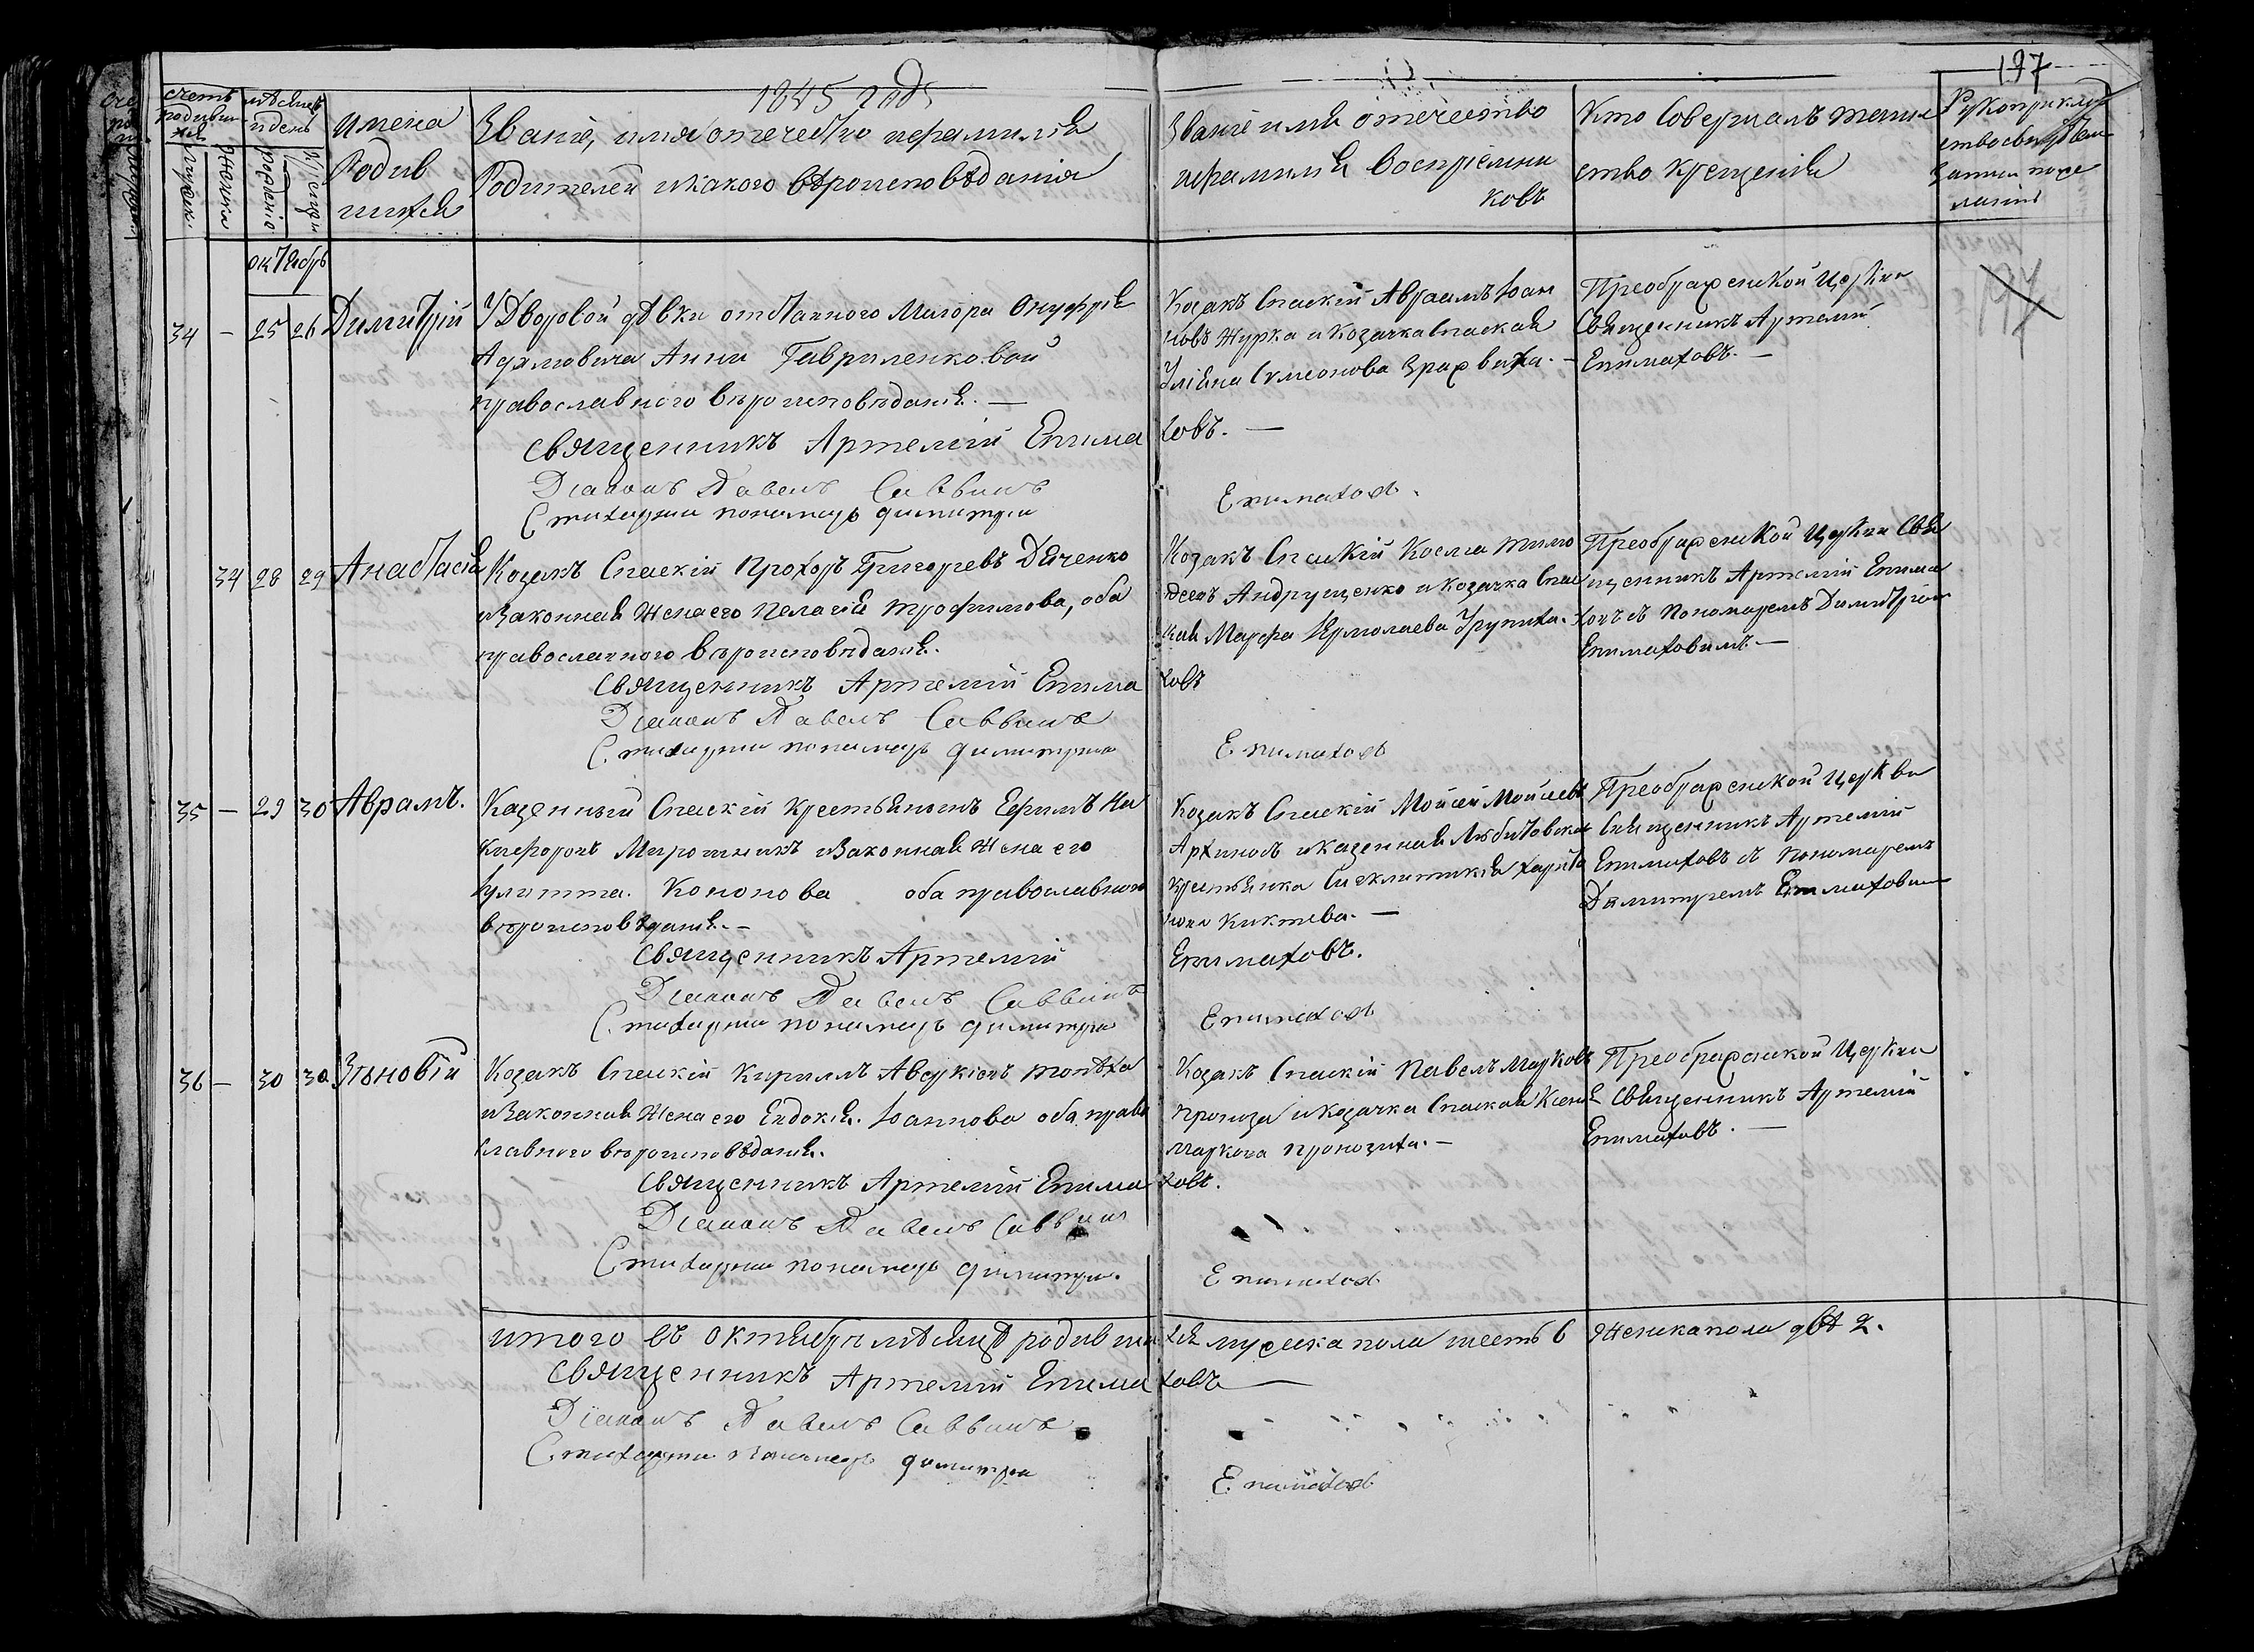 1845 года
197
счетъ
родивши
хся
мѣсяцъ
и день
мужск.
женска
рожденія
крещен
Имена
Родив
шихся
Званіе, имя отечество и фамилія
Родителей и какого вѣроисповѣданія
Званіе имя отечество
и фамилія Воспріемни
ковъ
Кто Совершалъ таин
ство крещенія
Рукоприклад
ство свидѣтел
записи поже
ланію
октябрь
34 — 25 26 Димитрій
У Дворовой дѣвки отставного Маіора Онуфрія
Адамовича Анны Гавриленковой
православного вѣроисповѣданія. —
Священникъ Артемій Епима
ховъ. —
Діаконъ Павелъ Саввинъ
Стихарный пономарь димитрій
Епимаховъ.
Козакъ Спаскій Авраамъ Іоан
новъ Журка и Козачка Спаская
Уліяна Сумеонова
Преображенской Церкви
Священникъ Артемій
Епимаховъ. —
34 28 29 Анастасія
Козакъ Спаскій Прохоръ Григорьевъ Дяченко
и Законная Жена его Пелагія Трофимова, оба
православного вѣроисповѣданія.
Священникъ Артемій Епима
ховъ
Діаконъ Павелъ Саввинъ
Стихарный пономарь димитрій
Епимаховъ
Козакъ Спаскій Косма Тимо
феевъ Андрущенко и козачка Спас
кая Марфа Ярмолаева Урупиха.
Преображенской Церкви Свя
щенникъ Артемій Епима
ховъ съ Пономаремъ Димитріем
Епимаховимъ. —
35 — 29 30 Аврамъ.
Казенный Спаскій Крестьянинъ Ефимъ Ни
кифоровъ Мирошникъ и Законная Жена его
Іулитта Кононова оба православного
вѣроисповѣданія. —
Священникъ Артемій
Епимаховъ.
Діаконъ Павелъ Саввинъ
Стихарный пономарь димитрій
Епимаховъ
Козакъ Спаскій Мойсей Мойсеевъ
и казенная
крестьянка
Киктева. —
Преображенской Церкви
Священникъ Артемій
Епимаховъ съ Пономаремъ
Димитріемъ Епимаховим
36 — 30 30 Зѣновій
Козакъ Спаскій Кириллъ Аверкіевъ
и Законная Жена его Евдокія Іоаннова оба право
славного вѣроисповѣданія.
Священникъ Артемій Епима
ховъ.
Діаконъ Павелъ Саввинъ
Стихарный пономарь димитрій.
Епимаховъ
Козакъ Спаскій Павелъ Марковъ
Проноза и Козачка Спаская Ксенія
Маркова Пронозиха. —
Преображенской Церкви
Священникъ Артемій
Епимаховъ. —
итого въ октябрѣ мѣсяцѣ родивши хся мужеска пола шесть 6 женска пола двѣ 2.
Священникъ Артемій Епима ховъ
Діаконъ Павелъ Саввинъ
Стихарный пономарь димитрій
Епимаховъ